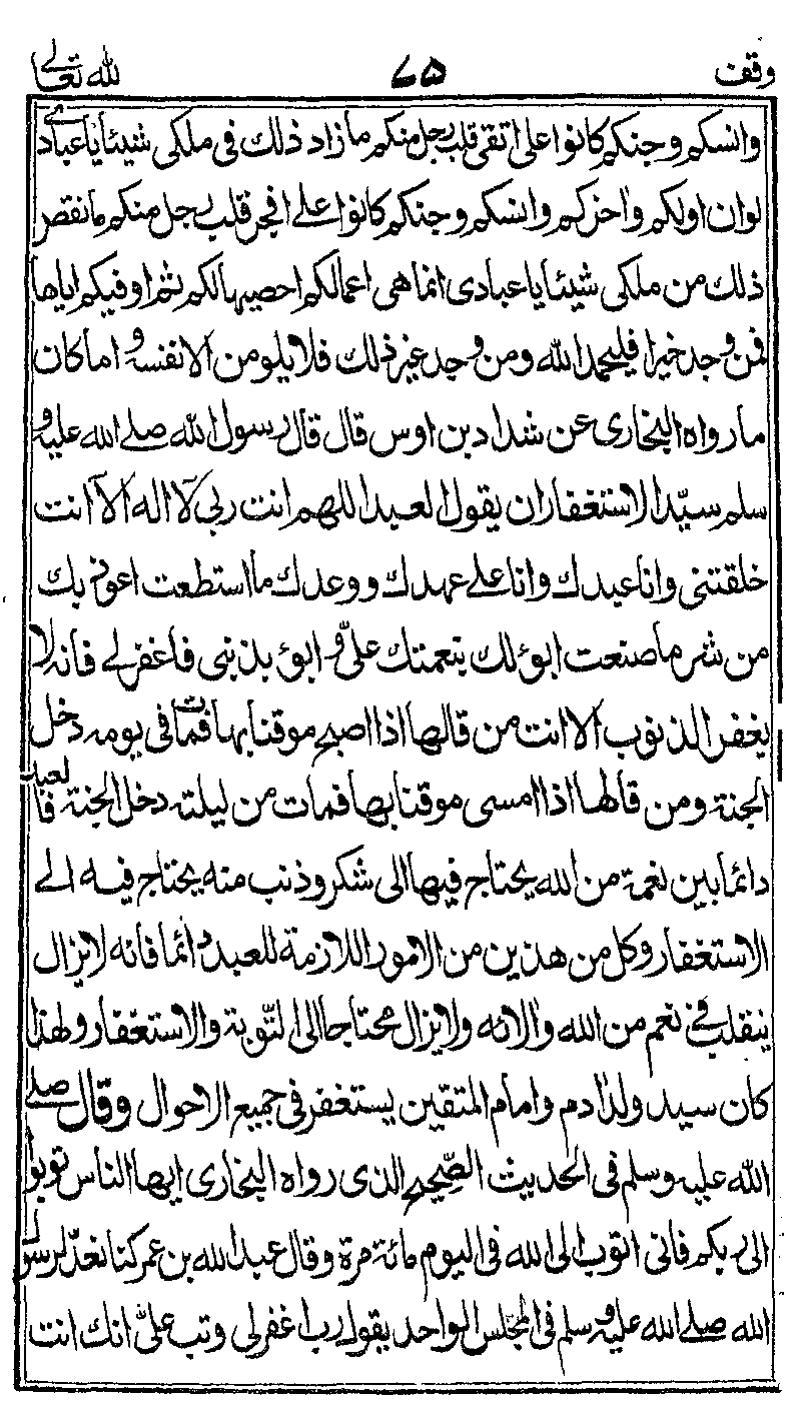 وقف ٧٥ لله تعالے
وانسكم وجنكم كانوا على اتقى قلب رجل منكم مازاد ذلك فى ملكى شيئا ياعبادے
لوان اولكم واخركم وانسكم وجنكم كانوا علے افجر قلب رجل منكم مانقص
ذلك من ملكى شيئا ياعبادى انما هى اعمالكم احصيها لكم ثم اوفيكم اياها
فمن وجد خيرا فليحمد الله ومن وجد غير ذلك فلايلومن الا نفسه و اما كان
مارواه البخارى عن شداد بن اوس قال قال رسول الله صلے الله عليه و
سلم سيّد الاستغفار ان يقول العبد اللهم انت ربى لآ اله الآ انت
خلقتنى وانا عبدك وانا علے عهدك ووعدك ما استطعت اعوذ بك
من شر ماصنعت ابوئ لك بنعمتك علىّ و ابوئ بذنبى فاغفر لے فانه لا
يغفر الذنوب الا انت من قالها اذا اصبح موقنا بها فمات فى يومه دخل
الجنة ومن قالها اذا امسى موقنا بها فمات من ليلته دخل الجنة فالعبد
دائما بين نعمة من الله يحتاج فيها الى شكر وذنب منه يحتاج فيه الے
الاستغفار وكل من هذين من الامور اللازمة للعبد دائما فانه لايزال
يتقلب فے نعم من الله والائه ولايزال محتاجا الى التّوبة والاستغفار ولهذا
كان سيد ولد ادم وامام المتقين يستغفر فى جميع الاحوال وقال صلے
الله عليه وسلم فى الحديث الصّحيح الذى رواه البخارى ايها الناس توبوا
الى ربكم فانى اتوب الى الله فى اليوم مائة مرة وقال عبد الله بن عمر كنا نعدّ لرسول
الله صلے الله عليه وسلم فى المجلس الواحد يقول رب اغفرلى وتب علىّ انك انت